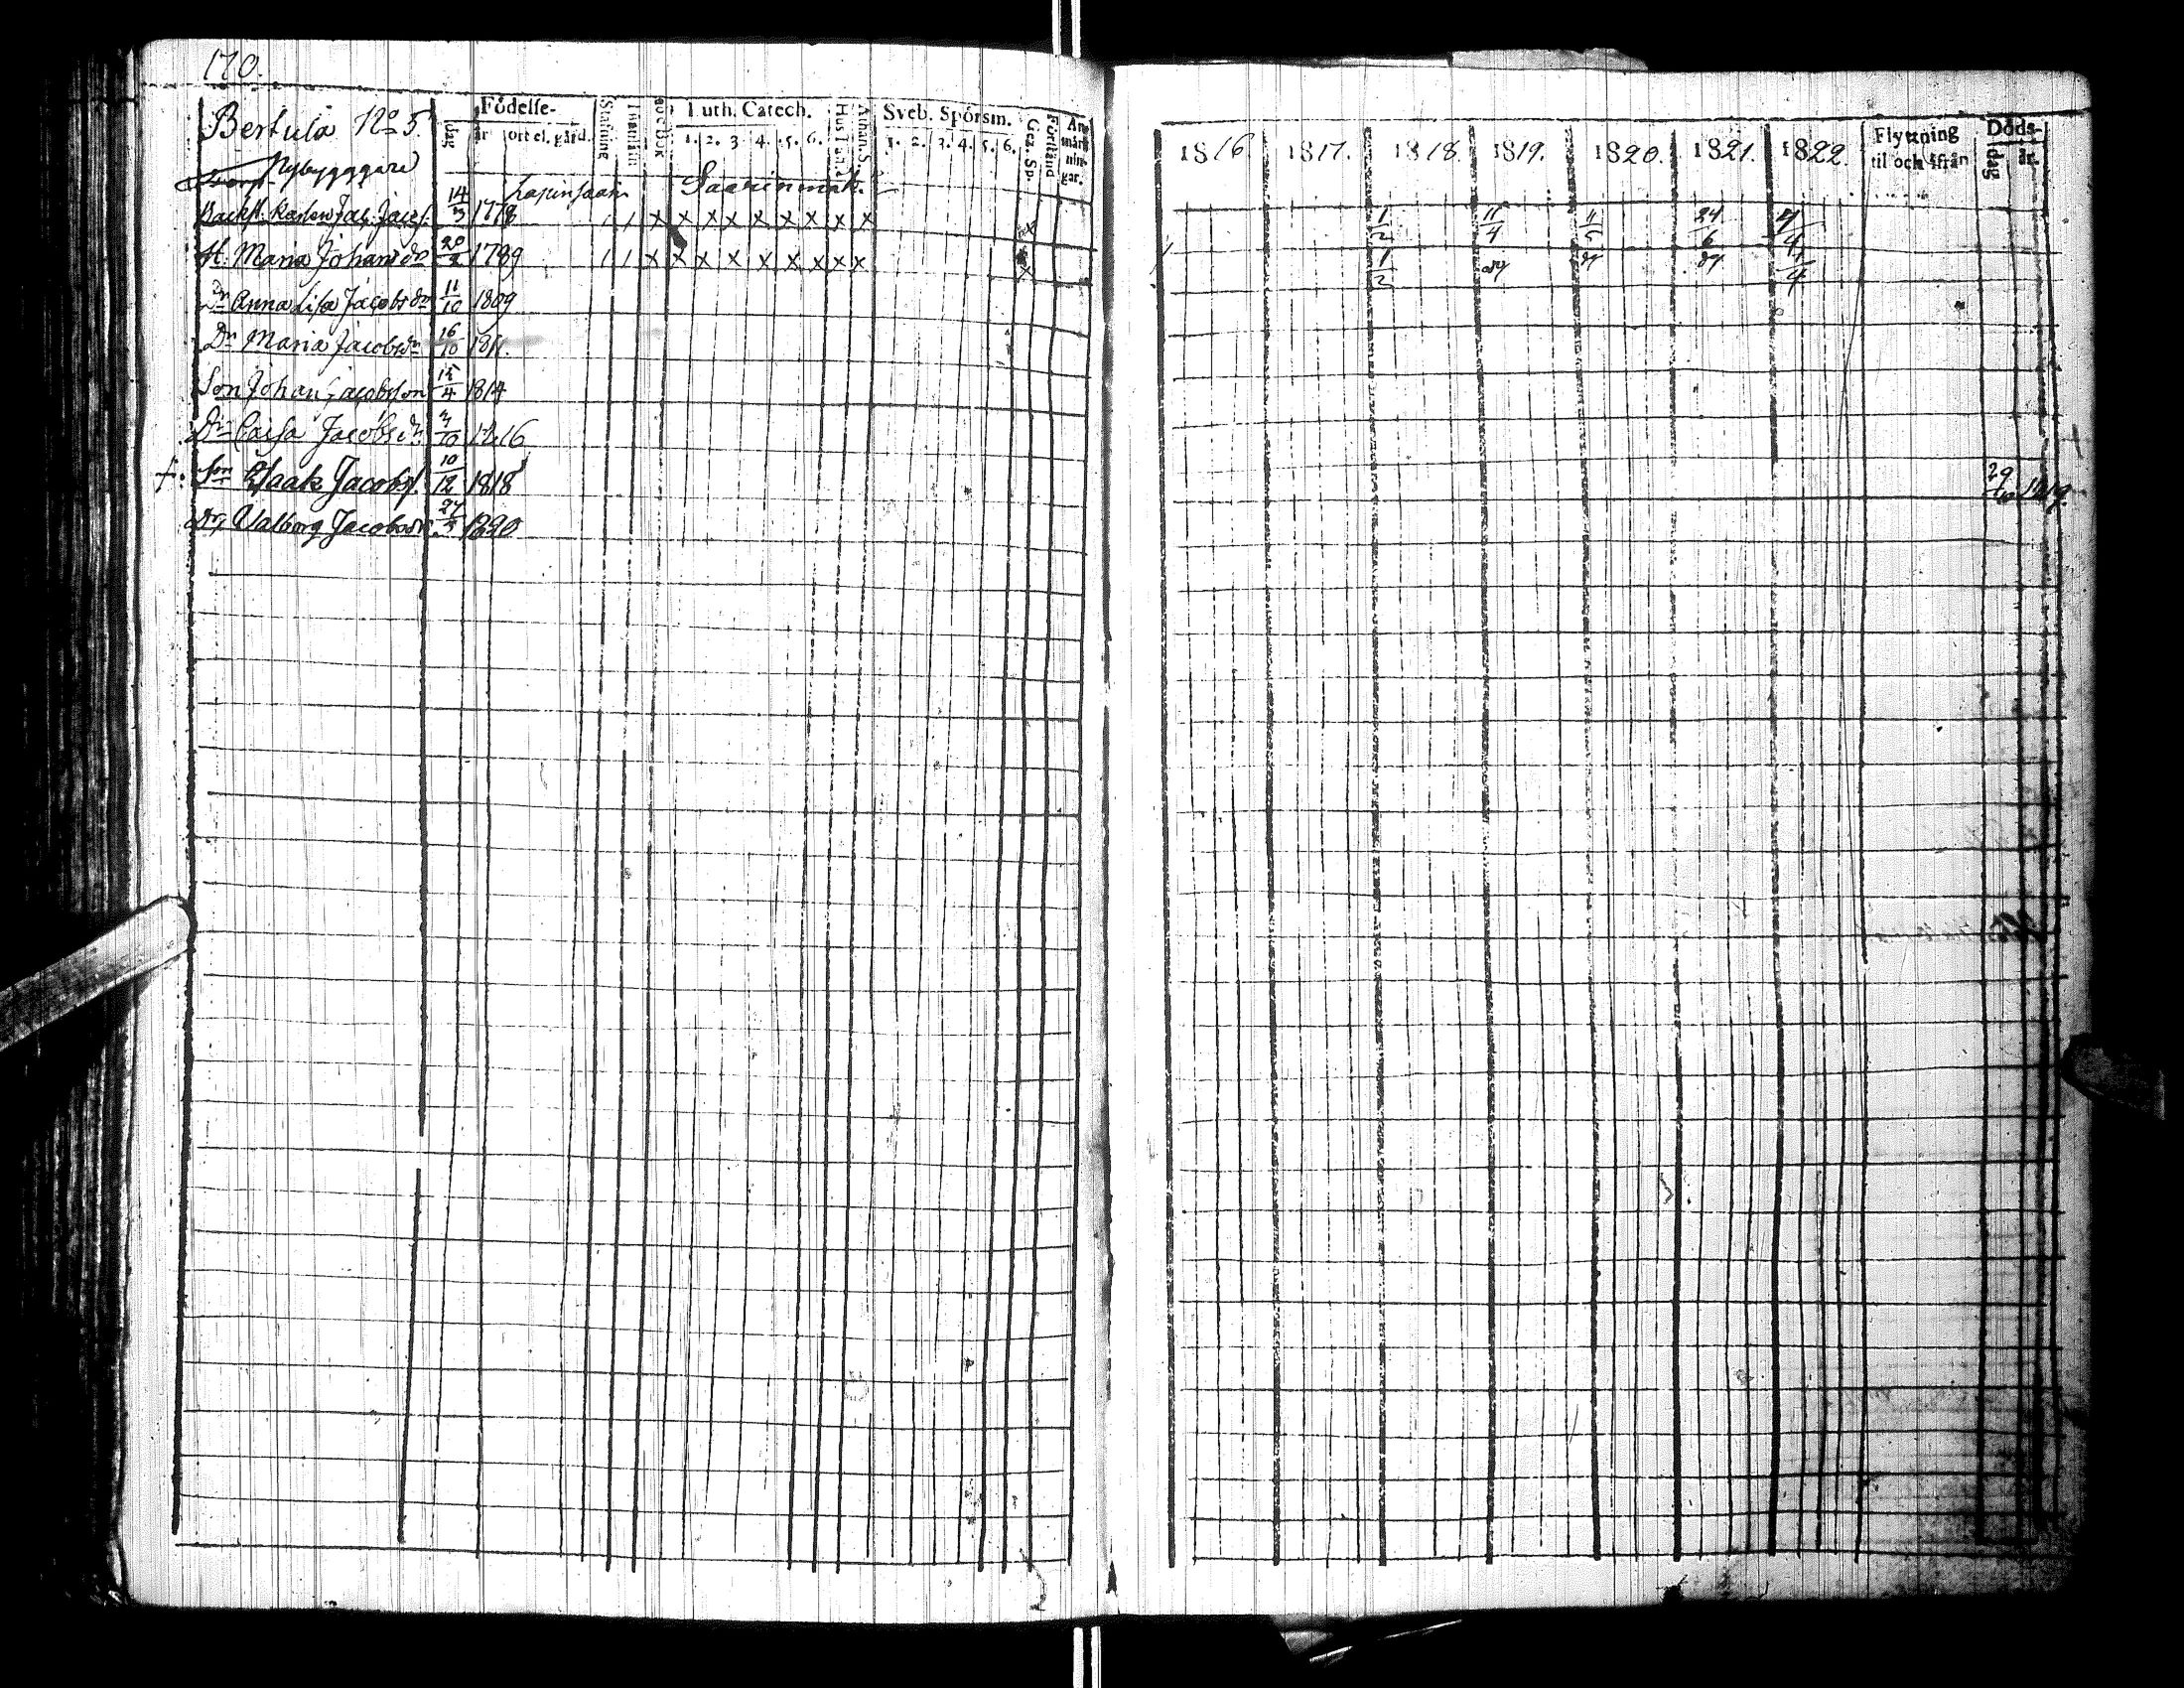 170.
Bertula No 5.
Födelse-
dag
år
ort el. gård.
Stafning
Innanl.
Luth. Catech.
1. 2. 3. 4. 5. 6.
Hustafla
Athan. S.
Sveb. Spörsm.
1. 2. 3. 4. 5. 6.
Gez. Sp.
Förstånd
An-
märk-
nin-
gar.
Nybyggare
Saarinmäk.
Jac. Jacobs. 14/3 1778 1 1 x x x x x x x x x
H. Maria Johansdr 20/2 1789 1 1 x x x x x x x x x x
Dr Anna Lisa Jacobsdr 11/10 1809
Dr Maria Jacobsdr 16/10 1811.
Son Johan Jacobsson 15/4 1814
Dr Caisa Jacobsdr 7/10 1816
+. Son Isaak Jacobs. 10/12 1818
Dr Valborg Jacobsdr. 27/3 1820
1816. 1817. 1818. 1819. 1820. 1821. 1822.
Flyttning
til och ifrån
Döds-
dag
år.
1/2 11/4 24/6
1/2
29/10 1819.